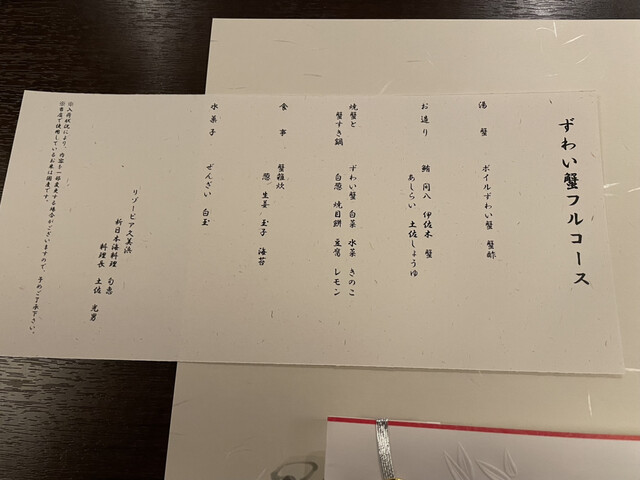 ずわい蟹フルコース
湯蟹 ボイルずわい蟹 蟹酢
お造り 鮪 間八 伊佐木 蟹
あしらい 土佐しょうゆ
焼蟹と
蟹すき鍋 ずわい蟹 白菜 水菜 きのこ
白葱 焼目餅 豆腐 レモン
食事 蟹雑炊
葱 生姜 玉子 海苔
水菓子 ぜんざい 白玉
リゾーピア久美浜
新日本海料理 旬恵
料理長 土佐 光男
※入荷状況により、内容を一部変更する場合がございますので、予めご了承下さい。
※当店で使用しているお米は国産です。